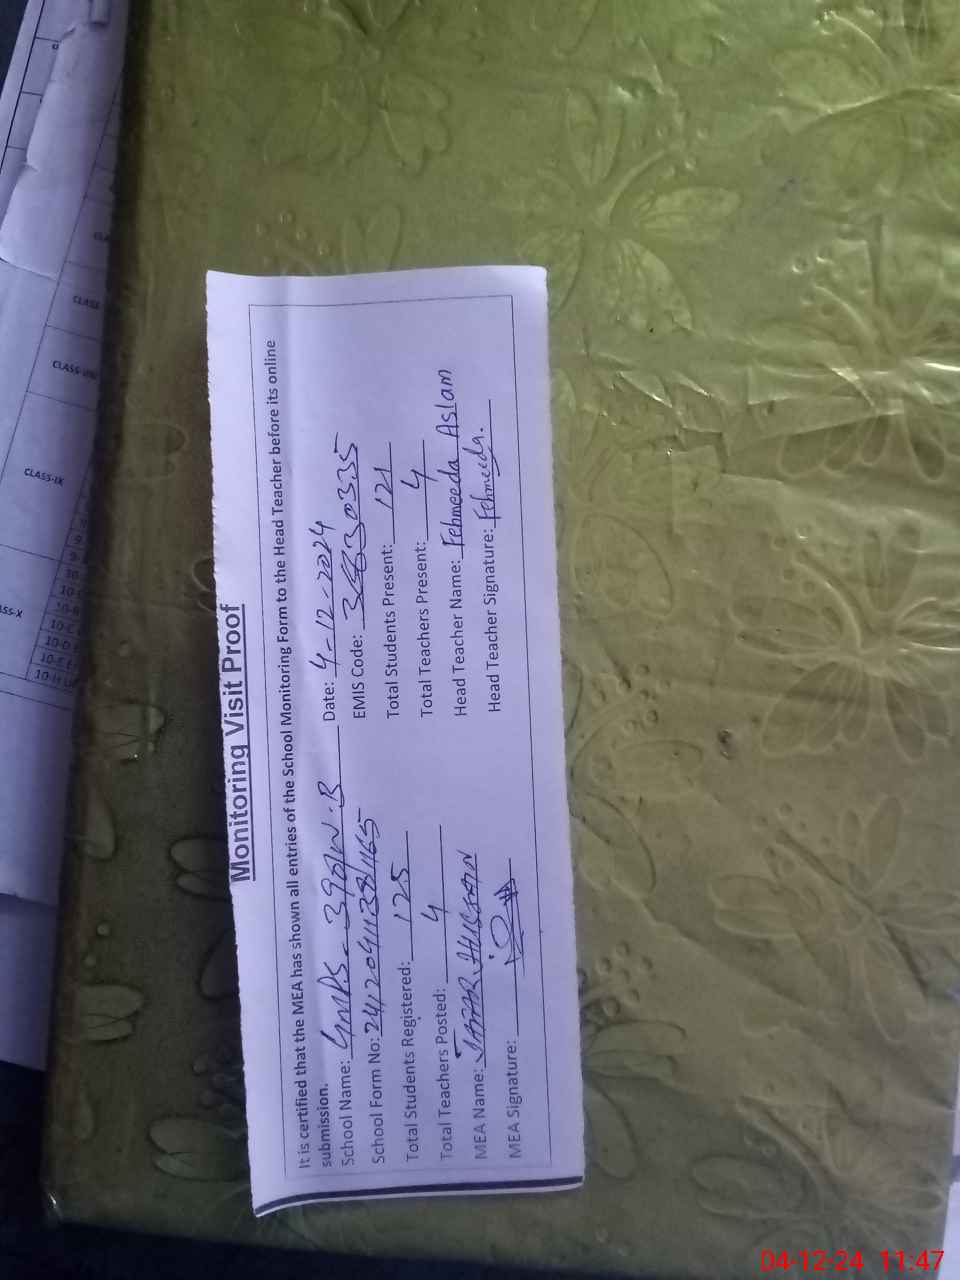 Monitoring Visit Proof
It is certified that the MEA has shown all entries of the School Monitoring Form to the Head Teacher before its online
submission.
School Name: GMPS- 390/W.B Date: 4-12-2024
School Form No: EMIS Code:
Total Students Registered: 125 Total Students Present: 121
Total Teachers Posted: 4 Total Teachers Present: 4
MEA Name: JAFAR HUSSAIN Head Teacher Name: Fehmeeda Aslam
MEA Signature: Head Teacher Signature: Fehmeeda.
CLASS
CLASS-VIII
CLASS-IX
10-D
04-12-24 11:47